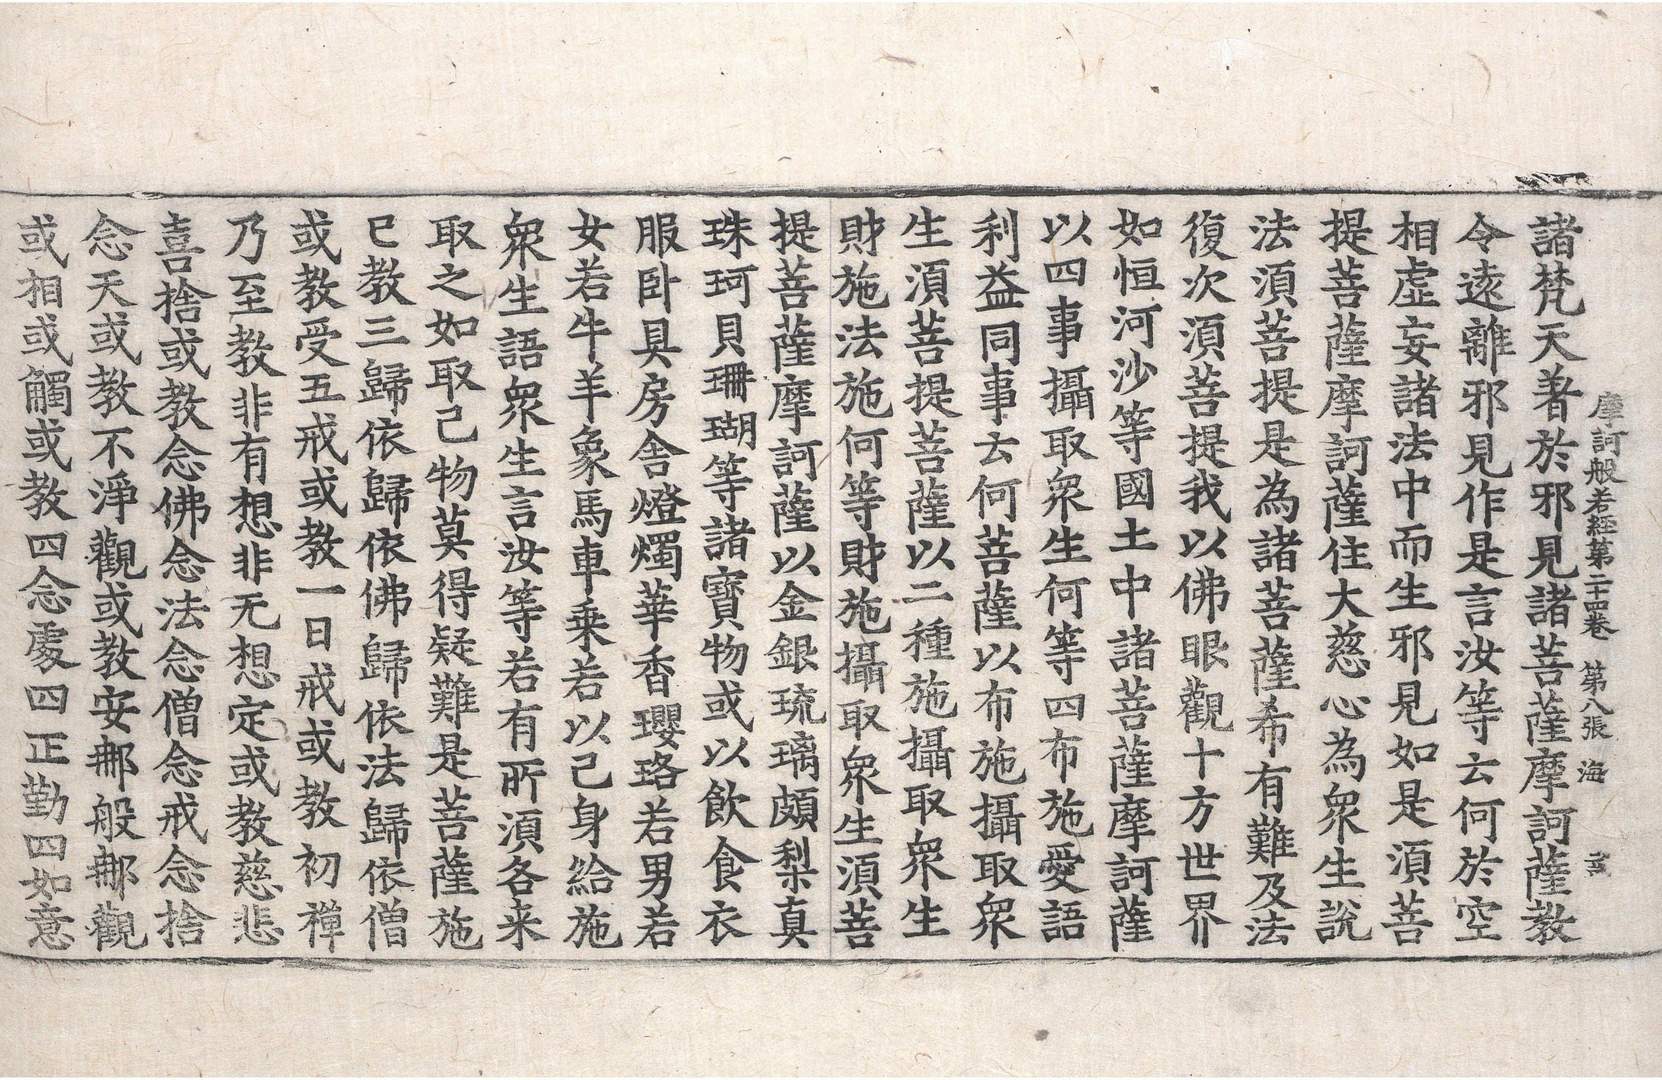 摩訶般若經第二十四卷 第八張 海
諸梵天著於邪見諸菩薩摩訶薩教
令遠離邪見作是言汝等云何於空
相虛妄諸法中而生邪見如是須菩
提菩薩摩訶薩住大慈心為衆生說
法須菩提是為諸菩薩希有難及法
復次須菩提我以佛眼觀十方世界
如恒河沙等國土中諸菩薩摩訶薩
以四事攝取衆生何等四布施愛語
利益同事云何菩薩以布施攝取衆
生須菩提菩薩以二種施攝取衆生
財施法施何等財施攝取衆生須菩
提菩薩摩訶薩以金銀琉璃頗梨真
珠珂貝珊瑚等諸寶物或以飲食衣
服卧具房舍燈燭華香瓔珞若男若
女若牛羊象馬車乗若以己身給施
衆生語衆生言汝等若有所須各来
取之如取己物莫得疑難是菩薩施
已教三歸依歸依佛歸依法歸依僧
或教受五戒或教一日戒或教初禪
乃至教非有想非无想定或教慈悲
喜捨或教念佛念法念僧念戒念捨
念天或教不淨觀或教安那般那觀
或相或觸或教四念處四正勤四如意